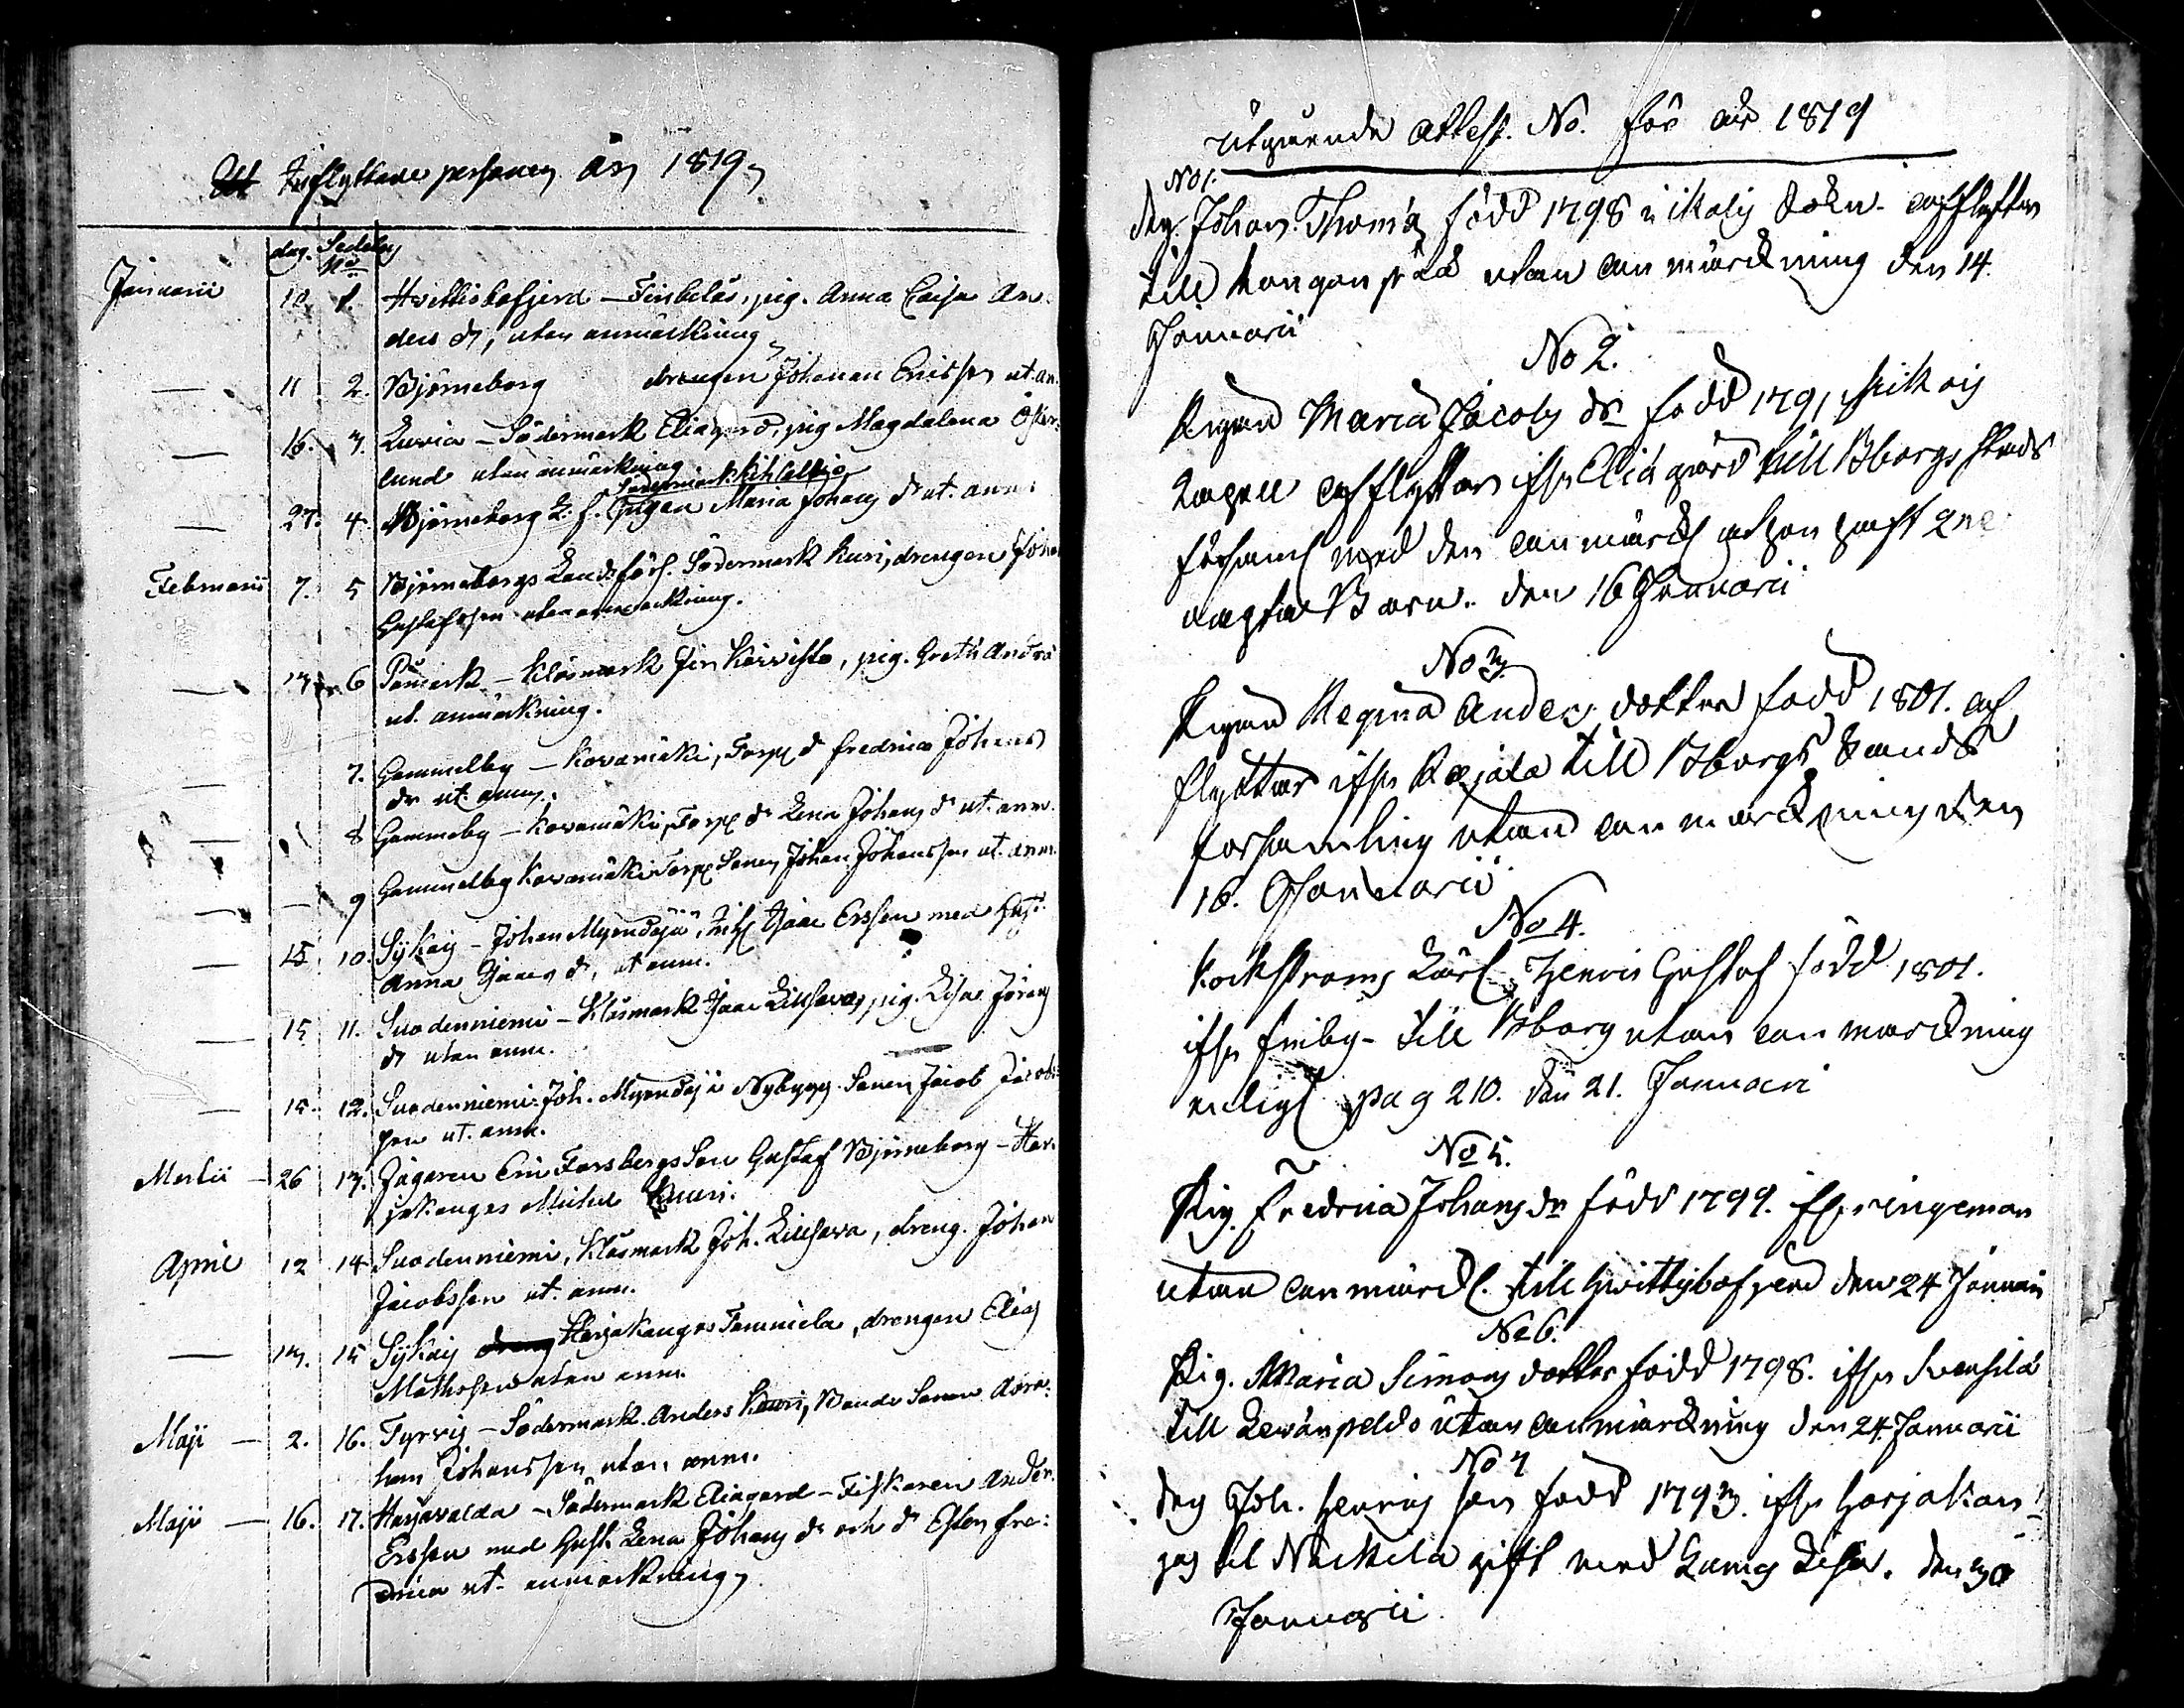 Inflyttade personer år 1819
dag. Sedelns No
Januarii 10 1. Hvittisbofjerd – Finbelas, pig. Anna Caisa An-
ders dr, utan anmärkning
— 11 2. Björneborg drengen Johanan Ericsson ut. an.
— 16. 3. Luvia – Södermark Eliagård, pig Magdalena Öster-
lund utan anmärkning.
— 27. 4. Björneborg L. f. Södermark pigan Maria Johans dr ut. anm:
Februarii 7. 5 Björneborgs Lands förs. Södermark Kuri, drengen Johan
Gustafsson utan anmärkning.
— 13 6 Påmark – Klåsmark pig. Greta Anders
ut. anmärkning.
— 7. Gammelby – Kovamäki, Torp dr Fredrica Johans
dr ut. anm.
— 8 Gammelby – Kovamäki, Torp dr Lena Johans dr ut. anm.
— 9 Gammelby Kovamäki Torp Sonen Johan Johansson ut. anm.
— 15 10. Sykais – Johan Myrnäjä, Isaac Ersson med Hust:
Anna Isaacs dr, ut anm.
— 15 11. Suodenniemi – Klåsmark Isaac Lillsava, pig. Lisa Jörans
dr utan anm.
— 15. 12. Suodenniemi. Joh. Myrnäjä Nybygg. Sonen Jacob Jacobs-
son ut. anm.
Martii – 26 13. Jägaren Eric Forsbergs Son Gustaf Björneborg – Har-
jakangas Michel Kauri.
April 12 14 Suodenniemi, Klåsmark Joh. Lillsava, dreng. Johan
Jacobsson ut. anm.
— 13. 15 Sykais Harjakangas Tommila, drengen Elias
Mathsson utan anm.
Maji – 2. 16. Tyrvis – Södermark Anders Kauri, Bonde Sonen Abra-
ham Johansson utan anm.
Maji – 16. 17. Harjavalda – Södermark Eliagård – Fiskaren Anders
Ersson med Hust. Lena Johans dr och dr Ester Fre-
drica ut. anmärkning
Utgående attest. No. för år 1819
No 1.
dreng. Johan Thomæ född 1798 i Ikalis Sokn. afflyttar
till Kongongård utan anmärkning den 14
Januarii
No 2.
Pigan Maria Jacobs dr född 1791 Siikais
Capell afflyttar ifrån Eliagård till Bborgs Stads
församl med den anmärk at hon haft 2ne
oägta Barn. den 16 Januarii
No 3.
Pigan Regina Anders dotter född 1801. af
flyttar ifrån Rajala till Bborgs Lands
församling utan anmärkning den
16. Januarii
No 4.
Kockströms Lärl. Henric Gustaf född 1801.
ifrån Finby – till Bborg utan anmärkning
enligt pag 210. den 21. Januari
No 5.
Pig. Fredrica Johans dr född 1799. ifrån Ingeman
utan anmärk. till Hvittisbofjerd den 24 Januarii
No 6.
Pig. Maria Simons dotter född 1798. ifrån Svensilä
till Levanpeldo utan anmärkning den 24 Januarii
No 7
dreng Joh. Henrics son född 1793. ifrån Harjakan-
gas til Nackila gift med Lars Lisa. den 30
Januarii